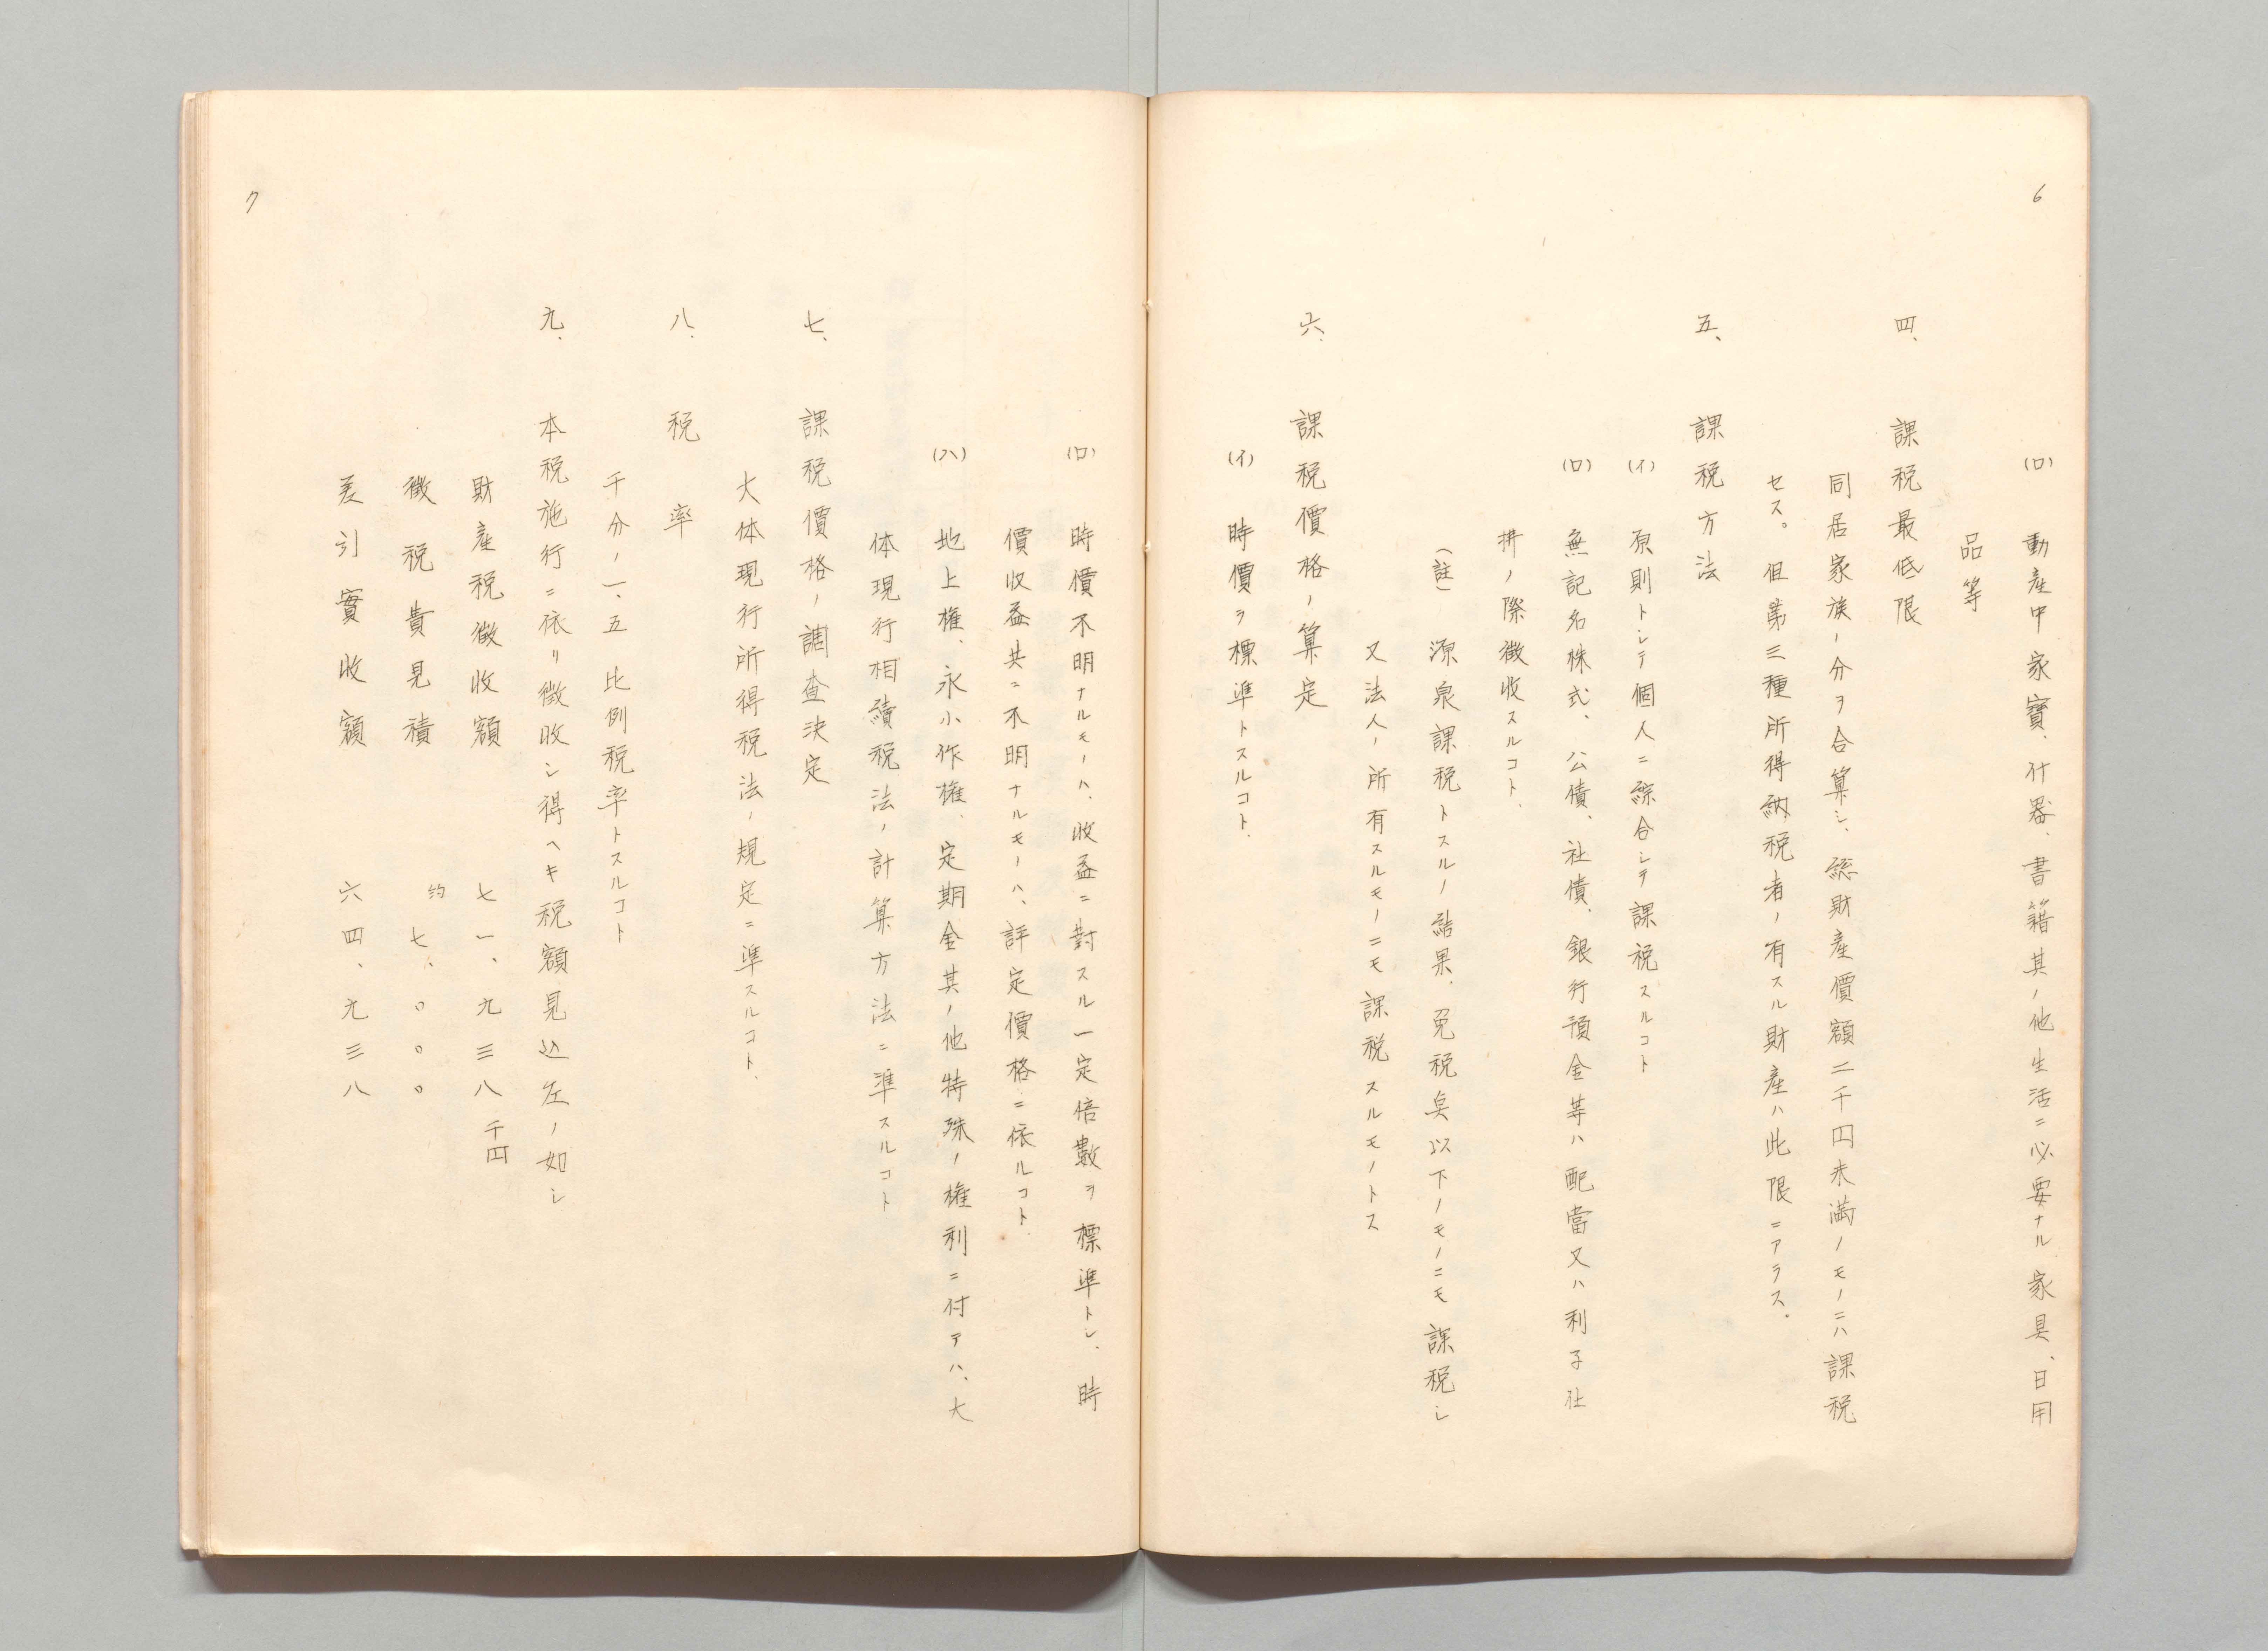 6
(ロ) 動産中家寶、什器、書籍其ノ他生活ニ必要ナル家具、日用
品等
四、 課税最低限
同居家族ノ分ヲ合算シ、総財産價額二千円未満ノモノニハ課税
セス。但第三種所得納税者ノ有スル財産ハ此限ニアラス.
五、 課税方法
(イ) 原則トシテ個人ニ綜合シテ課税スルコト
(ロ) 無記名株式、公債、社債、銀行預金等ハ配當又ハ利子仕
拂ノ際徴收スルコト.
(註) 源泉課税トスルノ結果、免税点以下ノモノニモ課税シ
又法人ノ所有スルモノニモ課税スルモノトス
六、 課税價格ノ算定
(イ) 時價ヲ標準トスルコト.
(ロ) 時價不明ナルモノハ、收益ニ對スル一定倍數ヲ標準トシ、時
價收益共ニ不明ナルモノハ、評定價格ニ依ルコト
(ハ) 地上権、永小作権、定期金其ノ他特殊ノ権利ニ付テハ、大
体現行相續税法ノ計算方法ニ準スルコト
七、 課税價格ノ調査決定
大体現行所得税法ノ規定ニ準スルコト.
八、 税率
千分ノ一、五比例税率トスルコト
九、 本税施行ニ依リ徴收シ得ヘキ税額見込左ノ如シ
財産税徴收額 七一、九三八千円
徴税費見積 約七、〇〇〇
差引實收額 六四、九三八
7